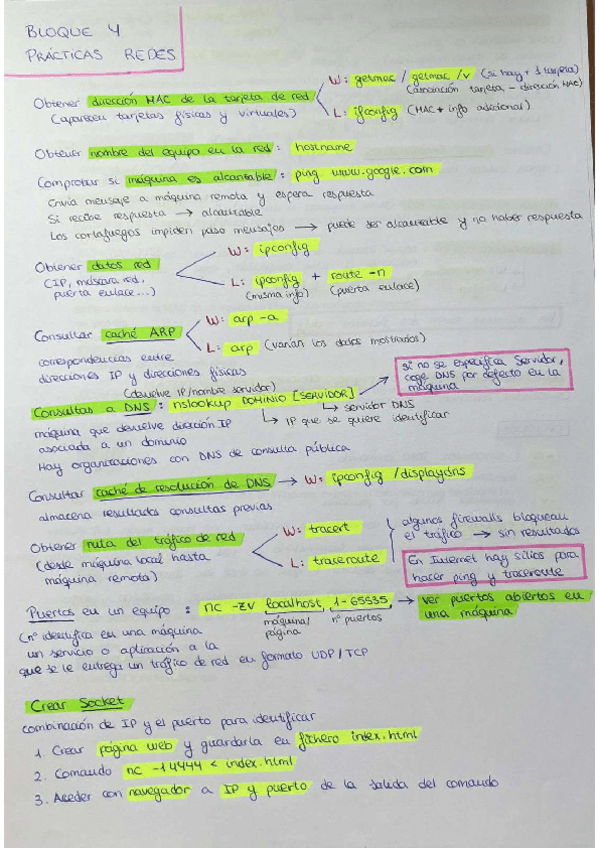 BLOQUE 4
PRÁCTICAS REDES
Obtener dirección MAC de la tarjeta de red
(aparecen tarjetas físicas y virtuales)
W: getmac / getmac /v (si hay + 1 tarjeta)
(asociación tarjeta - dirección MAC)
L: ifconfig (MAC + info adicional)
Obtener nombre del equipo en la red: hostname
Comprobar si máquina es alcanzable: ping www.google.com
Envía mensaje a máquina remota y espera respuesta
Si recibe respuesta → alcanzable
Los cortafuegos impiden paso mensajes → puede ser alcanzable y no haber respuesta
Obtener datos red
(IP, máscara red,
puerta enlace...)
W: ipconfig
L: ipconfig + route -n
(misma info) (puerta enlace)
Consultar caché ARP
correspondencias entre
direcciones IP y direcciones físicas
W: arp -a
L: arp (varían los datos mostrados)
(devuelve IP/nombre servidor)
Consultas a DNS: nslookup DOMINIO [SERVIDOR]
↳ servidor DNS
↳ IP que se quiere identificar
si no se especifica servidor,
coge DNS por defecto en la
máquina
máquina que devuelve dirección IP
asociada a un dominio
Hay organizaciones con DNS de consulta pública
Consultar caché de resolución de DNS → W: ipconfig /displaydns
almacena resultados consultas previas
Obtener ruta del tráfico de red
(desde máquina local hasta
máquina remota)
W: tracert
L: traceroute
algunos firewalls bloquean
el tráfico → sin resultados
En Internet hay sitios para
hacer ping y traceroute
Puertos en un equipo: nc -zv localhost 1-65535 → ver puertos abiertos en
una máquina
máquina/ nº puertos
página
(nº identifica en una máquina
un servicio o aplicación a la
que se le entrega un tráfico de red en formato UDP/TCP
Crear Socket
combinación de IP y el puerto para identificar
1. Crear página web y guardarla en fichero index.html
2. Comando nc -l 4444 < index.html
3. Acceder con navegador a IP y puerto de la salida del comando